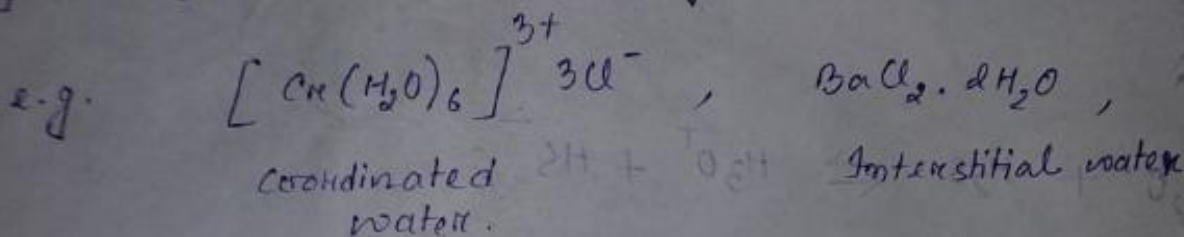 e.g. [Cr(H₂O)₆]³⁺ 3Cl⁻ , BaCl₂ . 2H₂O ,
Coordinated water. Interstitial water